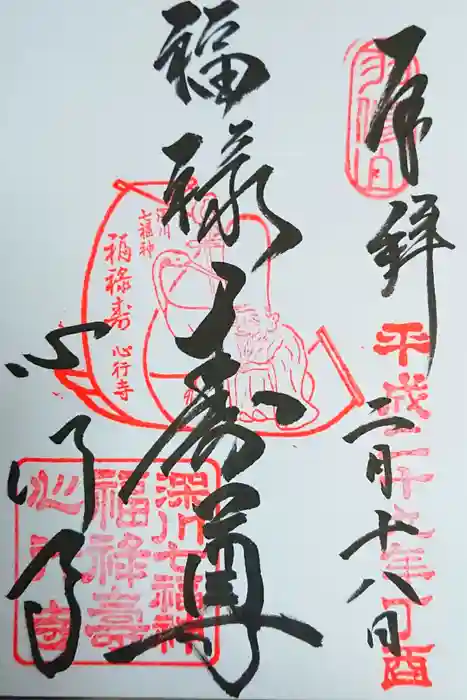 奉拝
平成二十九年丁酉
二月十八日
福禄寿尊
深川
七福神
福禄寿
心行寺
深川七福神
福禄壽
心行寺
心行寺